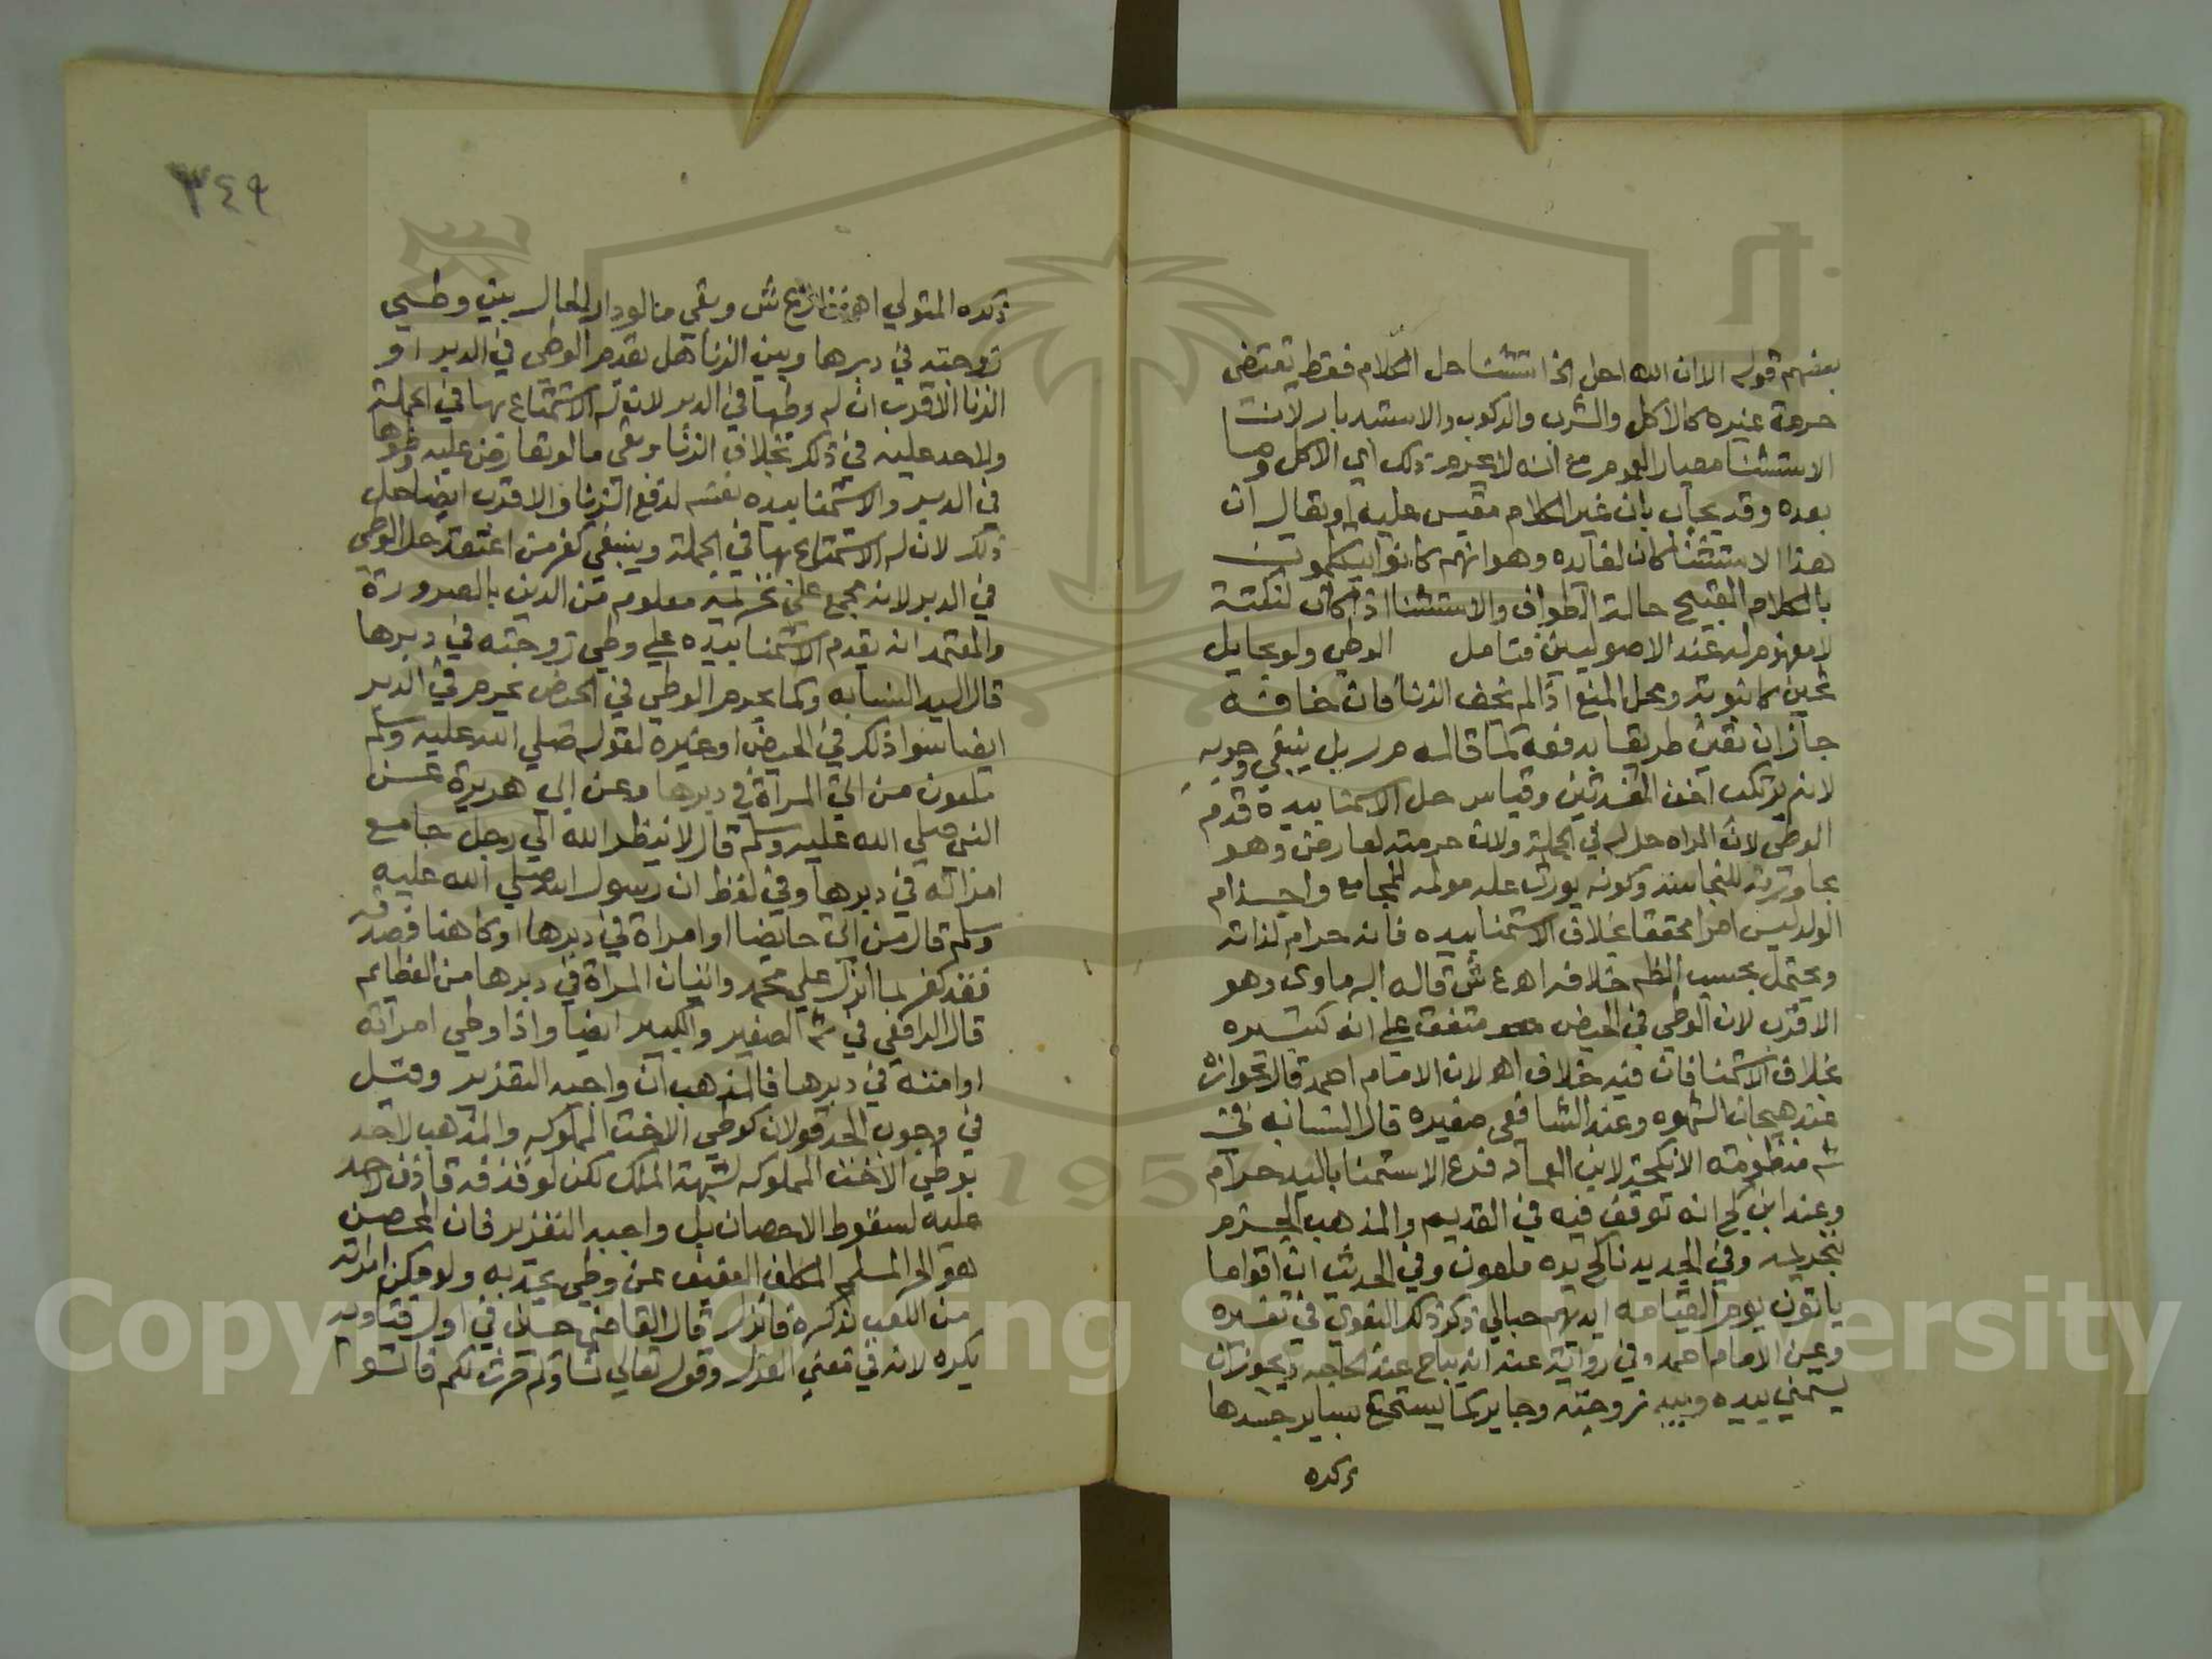 بعضهم قوله الا ان الله احل الخ استثنا حل الكلام فقط يقتضي
حرمة غيره كالاكل والشرب والركوب والاستدبار لان
الاستثنا معيار العموم مع انه لا يحرم ذلك اي الاكل وما
بعده وقد يجاب بان غير الكلام مقيس عليه او يقال ان
هذا الاستثنا كان لفايده وهو انهم كانوا يتكلمون
بالكلام القبيح حالة الطواف والاستثنا اذا كان لنكتة
لا مفهوم له عند الاصوليين فتامل الوطي ولو بحايل
ثخين كانبوبة ومحل المنع اذا لم يخف الزنا فان خافه
جاز ان تعين طريقا لدفعه كما قاله م ر بل ينبغي وجوبه
لانه يرتكب اخف المفسدتين وقياس حل الاستمنا بيده قدم
الوطي لان المراه حل له في الجملة ولان حرمته لعارض وهو
مجاورته للنجاسه وكونه يورث علة مولمه للمجامع واجذام
الولد ليس امرا محققا بخلاف الاستمنا بيده فانه حرام لذاته
ويحتمل بحسب النظر خلافه اهـ ع ش قاله البرماوى وهو
الاقرب لان الوطي في الحيض متفق على انه كبيره
بخلاف الاستمنا فان فيه خلاف اهـ لان الامام احمد قال بجوازه
عند هيجان الشهوه وعند الشافعي صغيره قال النسابه في
ش منظومته الانكحة لابن العماد فرع الاستمنا باليد حرام
وعند ابن كج انه توقف فيه في القديم والمذهب الجزم
بتحريمه وفي الجديد ناكح يده ملعون وفي الحديث ان اقواما
ياتون يوم القيامه ايديهم حبالي ذكر ذلك البغوي في تفسيره
وعن الامام احمد وفي رواية عنه انه يباح عند الحاجه ويجوز ان
يستمني بيده وبيد زوجته وجاريته كما يستمتع بساير جسدها
ذكره
٣٤٩
ذكره المتولي اهـ ع ش وبقي ما لو دار الحال بين وطيي
زوجته في دبرها وبين الزنا هل يقدم الوطي في الدبر او
الزنا الاقرب ان له وطيها في الدبر لان له الاستمتاع بها في الجملة
ولا حد عليه في ذلك بخلاف الزنا وبقي ما لو تعارض عليه وطوها
في الدبر والاستمنا بيده نفسه لدفع الزنا والاقرب ايضا حل
ذلك لان له الاستمتاع بها في الجملة وينبغي كفر من اعتقد حل الوطي
في الدبر لانه مجمع على تحريمه معلوم من الدين بالضرورة
والمعتمد انه يقدم الاستمنا بيده على وطي زوجته في دبرها
قال السيد النسابه وكما يحرم الوطي في الحيض يحرم في الدبر
ايضا سوا ذلك في الحيض او غيره لقوله صلى الله عليه وسلم
ملعون من اتى المراة في دبرها وعن ابي هريرة عن
النبي صلى الله عليه وسلم قال لا ينظر الله الي رجل جامع
امراته في دبرها وفي لفظ ان رسول الله صلى الله عليه
وسلم قال من اتى حايضا او امراة في دبرها او كاهنا فصدقه
فقد كفر بما انزل على محمد واتيان المراة في دبرها من العظايم
قال الرافعي في ش الصغير والكبير ايضا واذا وطي امراته
او امته في دبرها فالمذهب ان واجبه التعزير وقيل
في وجوب الحد قولان كوطي الاخت المملوكه والمذهب لا حد
بوطي الاخت المملوكه لشبهة الملك لكن لو قذفه قاذف لا حد
عليه لسقوط الاحصان بل واجبه التعزير فان المحصن
هو الحر المسلم المكلف العفيف عن وطي يحد به ولو مكن امراته
من اللعب بذكره فانزل قال القاضي حسين في اول فتاويه
يكره لانه في معنى العزل وقوله تعالي نساوكم حرث لكم فاتوا